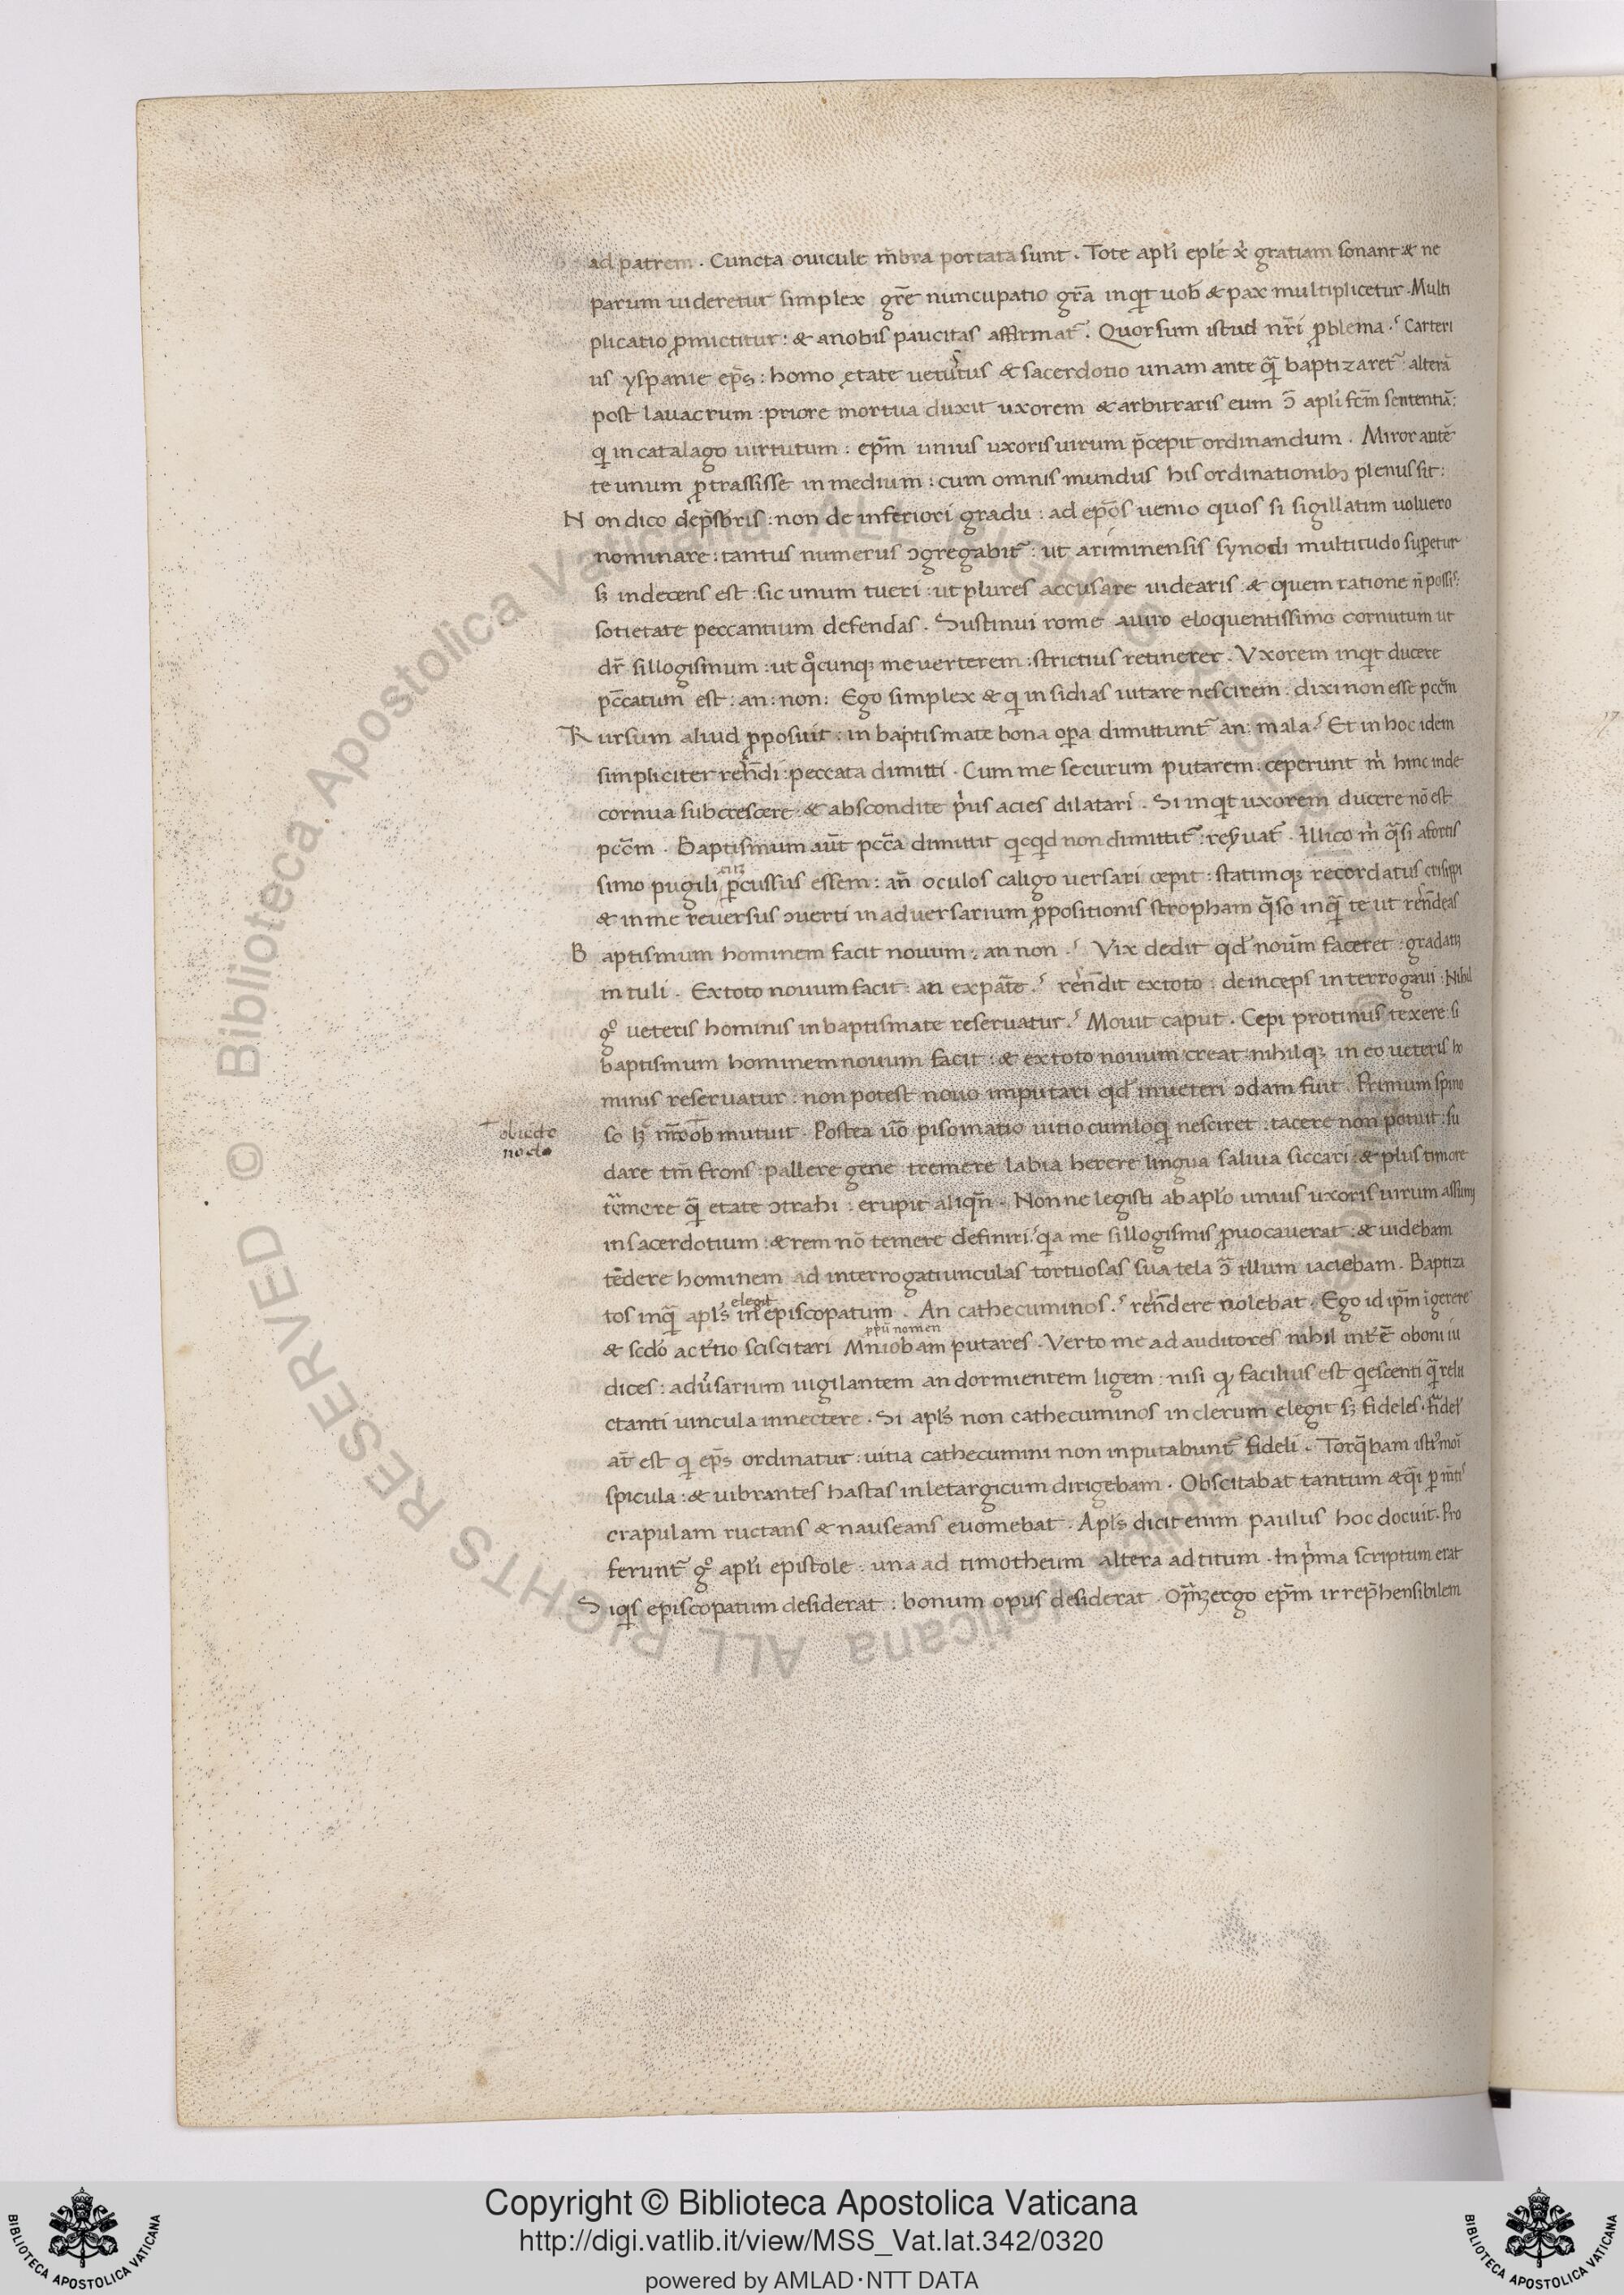 ad patrem . Cuncta ouicule m̄bra portata sunt . Tote apl̄i epl̄e xp̄i gratiam sonant & ne
parum uideretur simplex gr̄e nuncupatio gr̄a inqt uob & pax multiplicetur . Multi
plicatio ꝓmictitur : & anobis paucitas affirmat̄ . Quorsum istud nr̄i ꝓblema . Carteri
us yspanie ep̄s : homo ętate uetustus & sacerdotio unam ante q̄ baptizaret̄ : alterā
post lauacrum : priore mortua duxit uxorem & arbitraris eum ↄ̄ apl̄i fec̄m sententiā :
qi in catalago uirtutum : ep̄m unius uxoris uirum p̄cepit ordinandum . Miror antē
te unum ꝓtrassisse in medium : cum omnis mundus his ordinationibꝫ plenus sit :
Non dico dep̄sbr̄is : non de inferiori gradu : ad ep̄os uenio quos si sigillatim uoluero
nominare : tantus numerus ↄgregabit̄ : ut ariminensis synodi multitudo suꝑetur
sꝫ indecens est : sic unum tueri : ut plures accusare uidearis : & quem ratione n̄ possis :
sotietate peccantium defendas . Sustinui rome auiro eloquentissimo cornutum ut
dr̄ sillogismum : ut qͦcunqꝫ me uerterem : strictius retinerer . Vxorem inqt ducere
pc̄catum est : an : non : Ego simplex & qi insidias uitare nescirem : dixi non esse pcc̄m
Rursum aliud ꝓposuit : in baptismate bona oꝑa dimittunt̄ an : mala . Et in hoc idem
simpliciter ren̄di : peccata dimitti . Cum me securum putarem : ceperunt m̄ hinc inde
cornua subcrescere & abscondite p̄us acies dilatari . Si inqt uxorem ducere nō est
pcc̄m . Baptismum aūt pcc̄a dimittit qicqid non dimittit̄ : res̄uat̄ . Illico m̄ qͣsi afortis
simo pugili ꝑcussus essem : an̄ oculos caligo uersari cepit : statimqꝫ recordatus crisippi
& in me reuersus ↄuerti in aduersarium ꝓpositionis stropham qͣso inq̄ te ut ren̄deas
Baptismum hominem facit nouum : an non . Vix dedit qd̄ nouūm faceret : gradatī
intuli . Extoto nouum facit : an expāte . ren̄dit extoto : deinceps interrogaui : Nihil
gͦ ueteris hominis in baptismate reseruatur . Mouit caput . Cepi protinus texere : si
baptismum hominem nouum facit : & extoto nouum creat : nihilqꝫ in eo ueteris ho
minis reseruatur : non potest nouo imputari qd̄ in ueteri ↄdam fuit . Primum spino
so mutuit . Postea ūo pisomatio uitio cum loqi nesciret : tacere non potuit : su
obiecto
nodo
dare tm̄ frons : pallere gene tremere labia herere lingua saliua siccari : & plus timore
q̄ etate ↄtrahi : erupit aliqn̄ . Nonne legisti ab apl̄o unius uxoris uirum assumi
in sacerdotium : & rem nō temere definiri : qia me sillogismis ꝓuocauerat : & uidebam
tēdere hominem ad interrogatiunculas tortuosas sua tela ↄ̄ illum iaciebam . Baptiza
elegit
tos inq̄ apl̄s in episcopatum . An cathecuminos . ren̄dere nolebat . Ego id ip̄m igerere
ꝓpiū nomen
& scd̄o ac t̄tio sciscitari Mniobam putares . Verto me ad auditores nihil int̄ē oboni iu
dices : adūsarium uigilantem an dormientem ligem : nisi qꝫ facilius est qiescenti q̄ relu
ctanti uincula innectere . Si apl̄s non cathecuminos in clerum elegit sꝫ fideles . fidel̄
at̄ est qi ep̄s ordinatur : uitia cathecumini non inputabunt̄ fideli . Torq̄bam isti᷒moī
spicula : & uibrantes hastas in letargicum dirigebam . Obscitabat tantum & qͣi ꝑ mn̄ti᷒
crapulam ructans & nauseans euomebat . Apl̄s dicit enim paulus hoc docuit . Pro
ferunt̄ gͦ apl̄i epistole : una ad timotheum altera ad titum . In p̄ma scriptum erat
Siqis episcopatum desiderat : bonum opus desiderat . Oꝑtꝫ ergo ep̄m irrep̄hensibilem
Copyright © Biblioteca Apostolica Vaticana
http://digi.vatlib.it/view/MSS_Vat.lat.342/0320
powered by AMLAD·NTT DATA
BIBLIOTECA APOSTOLICA VATICANA
BIBLIOTECA APOSTOLICA VATICANA
© Biblioteca Apostolica Vaticana ALL RIGHTS RESERVED